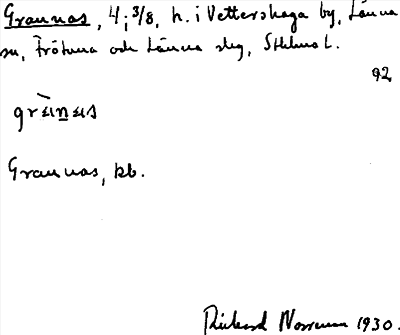 Grannas, 4; 3/8, h. i Vettershaga by, Länna
sn, Frötuna och Länna slg, Sthlms l.
92
Grannas, kb.
Rickard Norrman 1930.